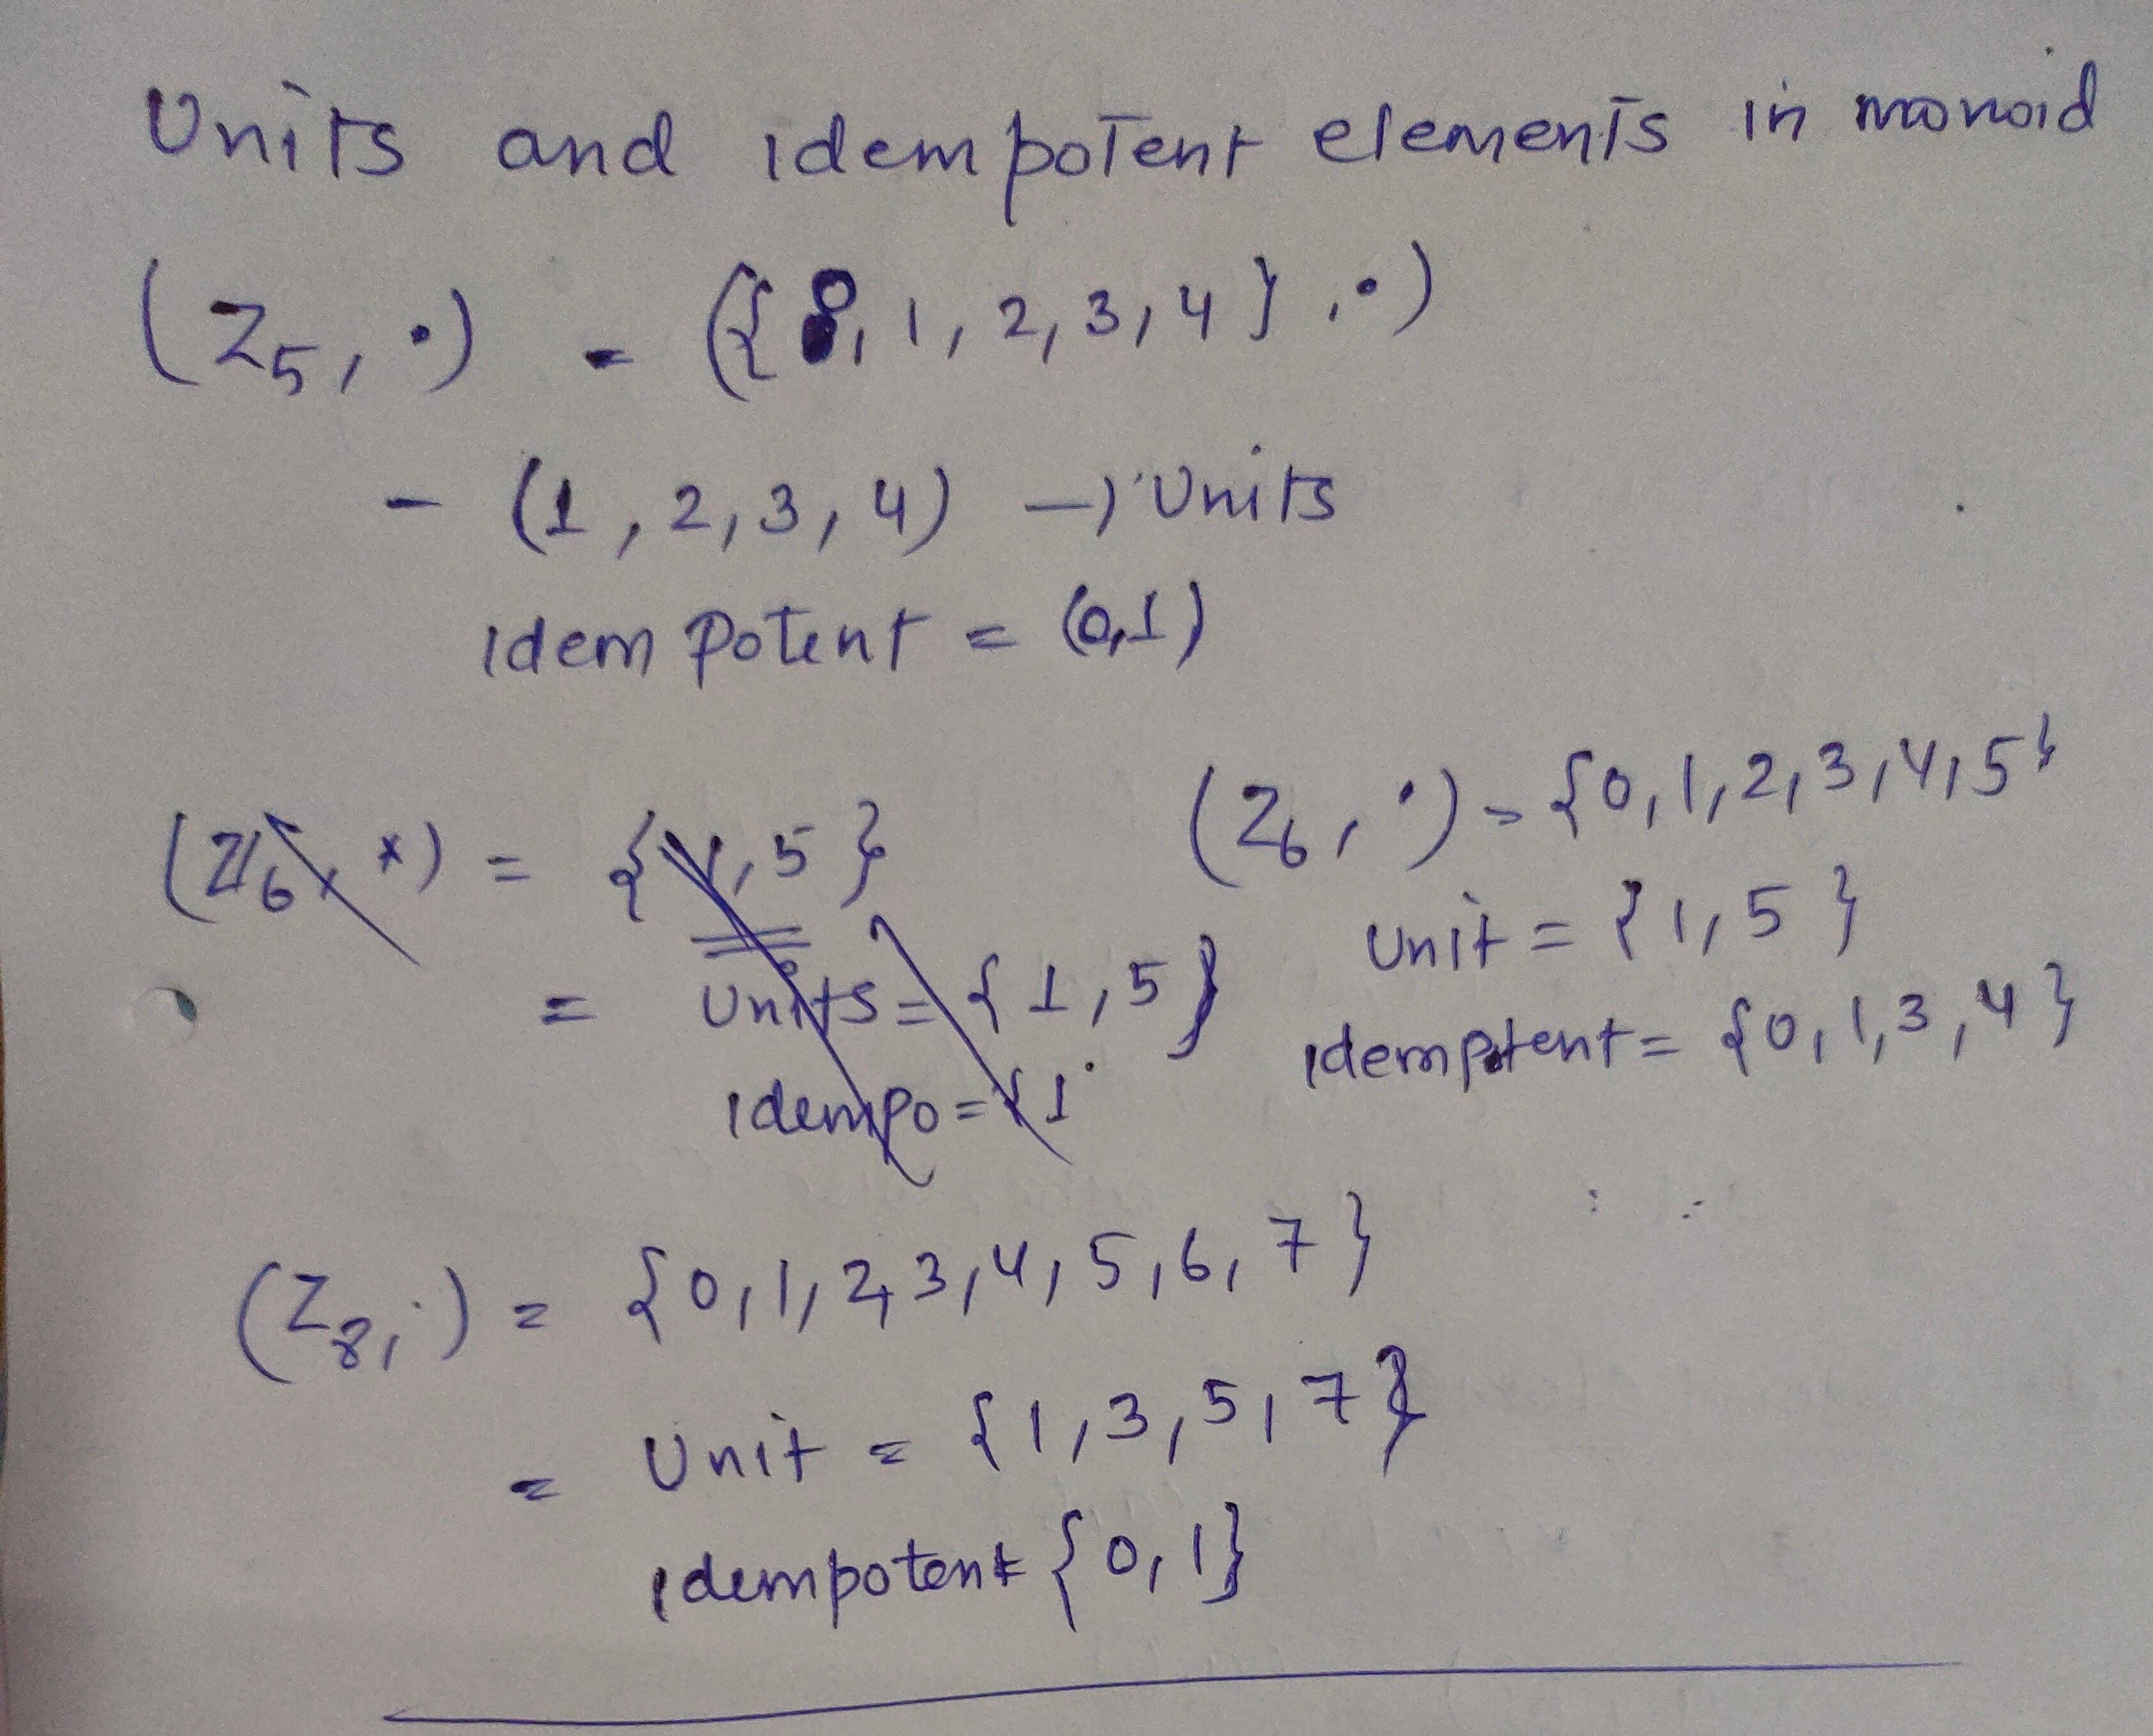 Units and idempotent elements in monoid
(Z5, •) = ({0, 1, 2, 3, 4}, •)
- (1, 2, 3, 4) → Units
Idempotent = (0,1)
(Z6, *) = {1, 5}
= Units = {1, 5}
Idempo = {1
(Z6, •) = {0, 1, 2, 3, 4, 5}
Unit = {1, 5}
Idempotent = {0, 1, 3, 4}
(Z8, •) = {0, 1, 2, 3, 4, 5, 6, 7}
= Unit = {1, 3, 5, 7}
Idempotent {0, 1}